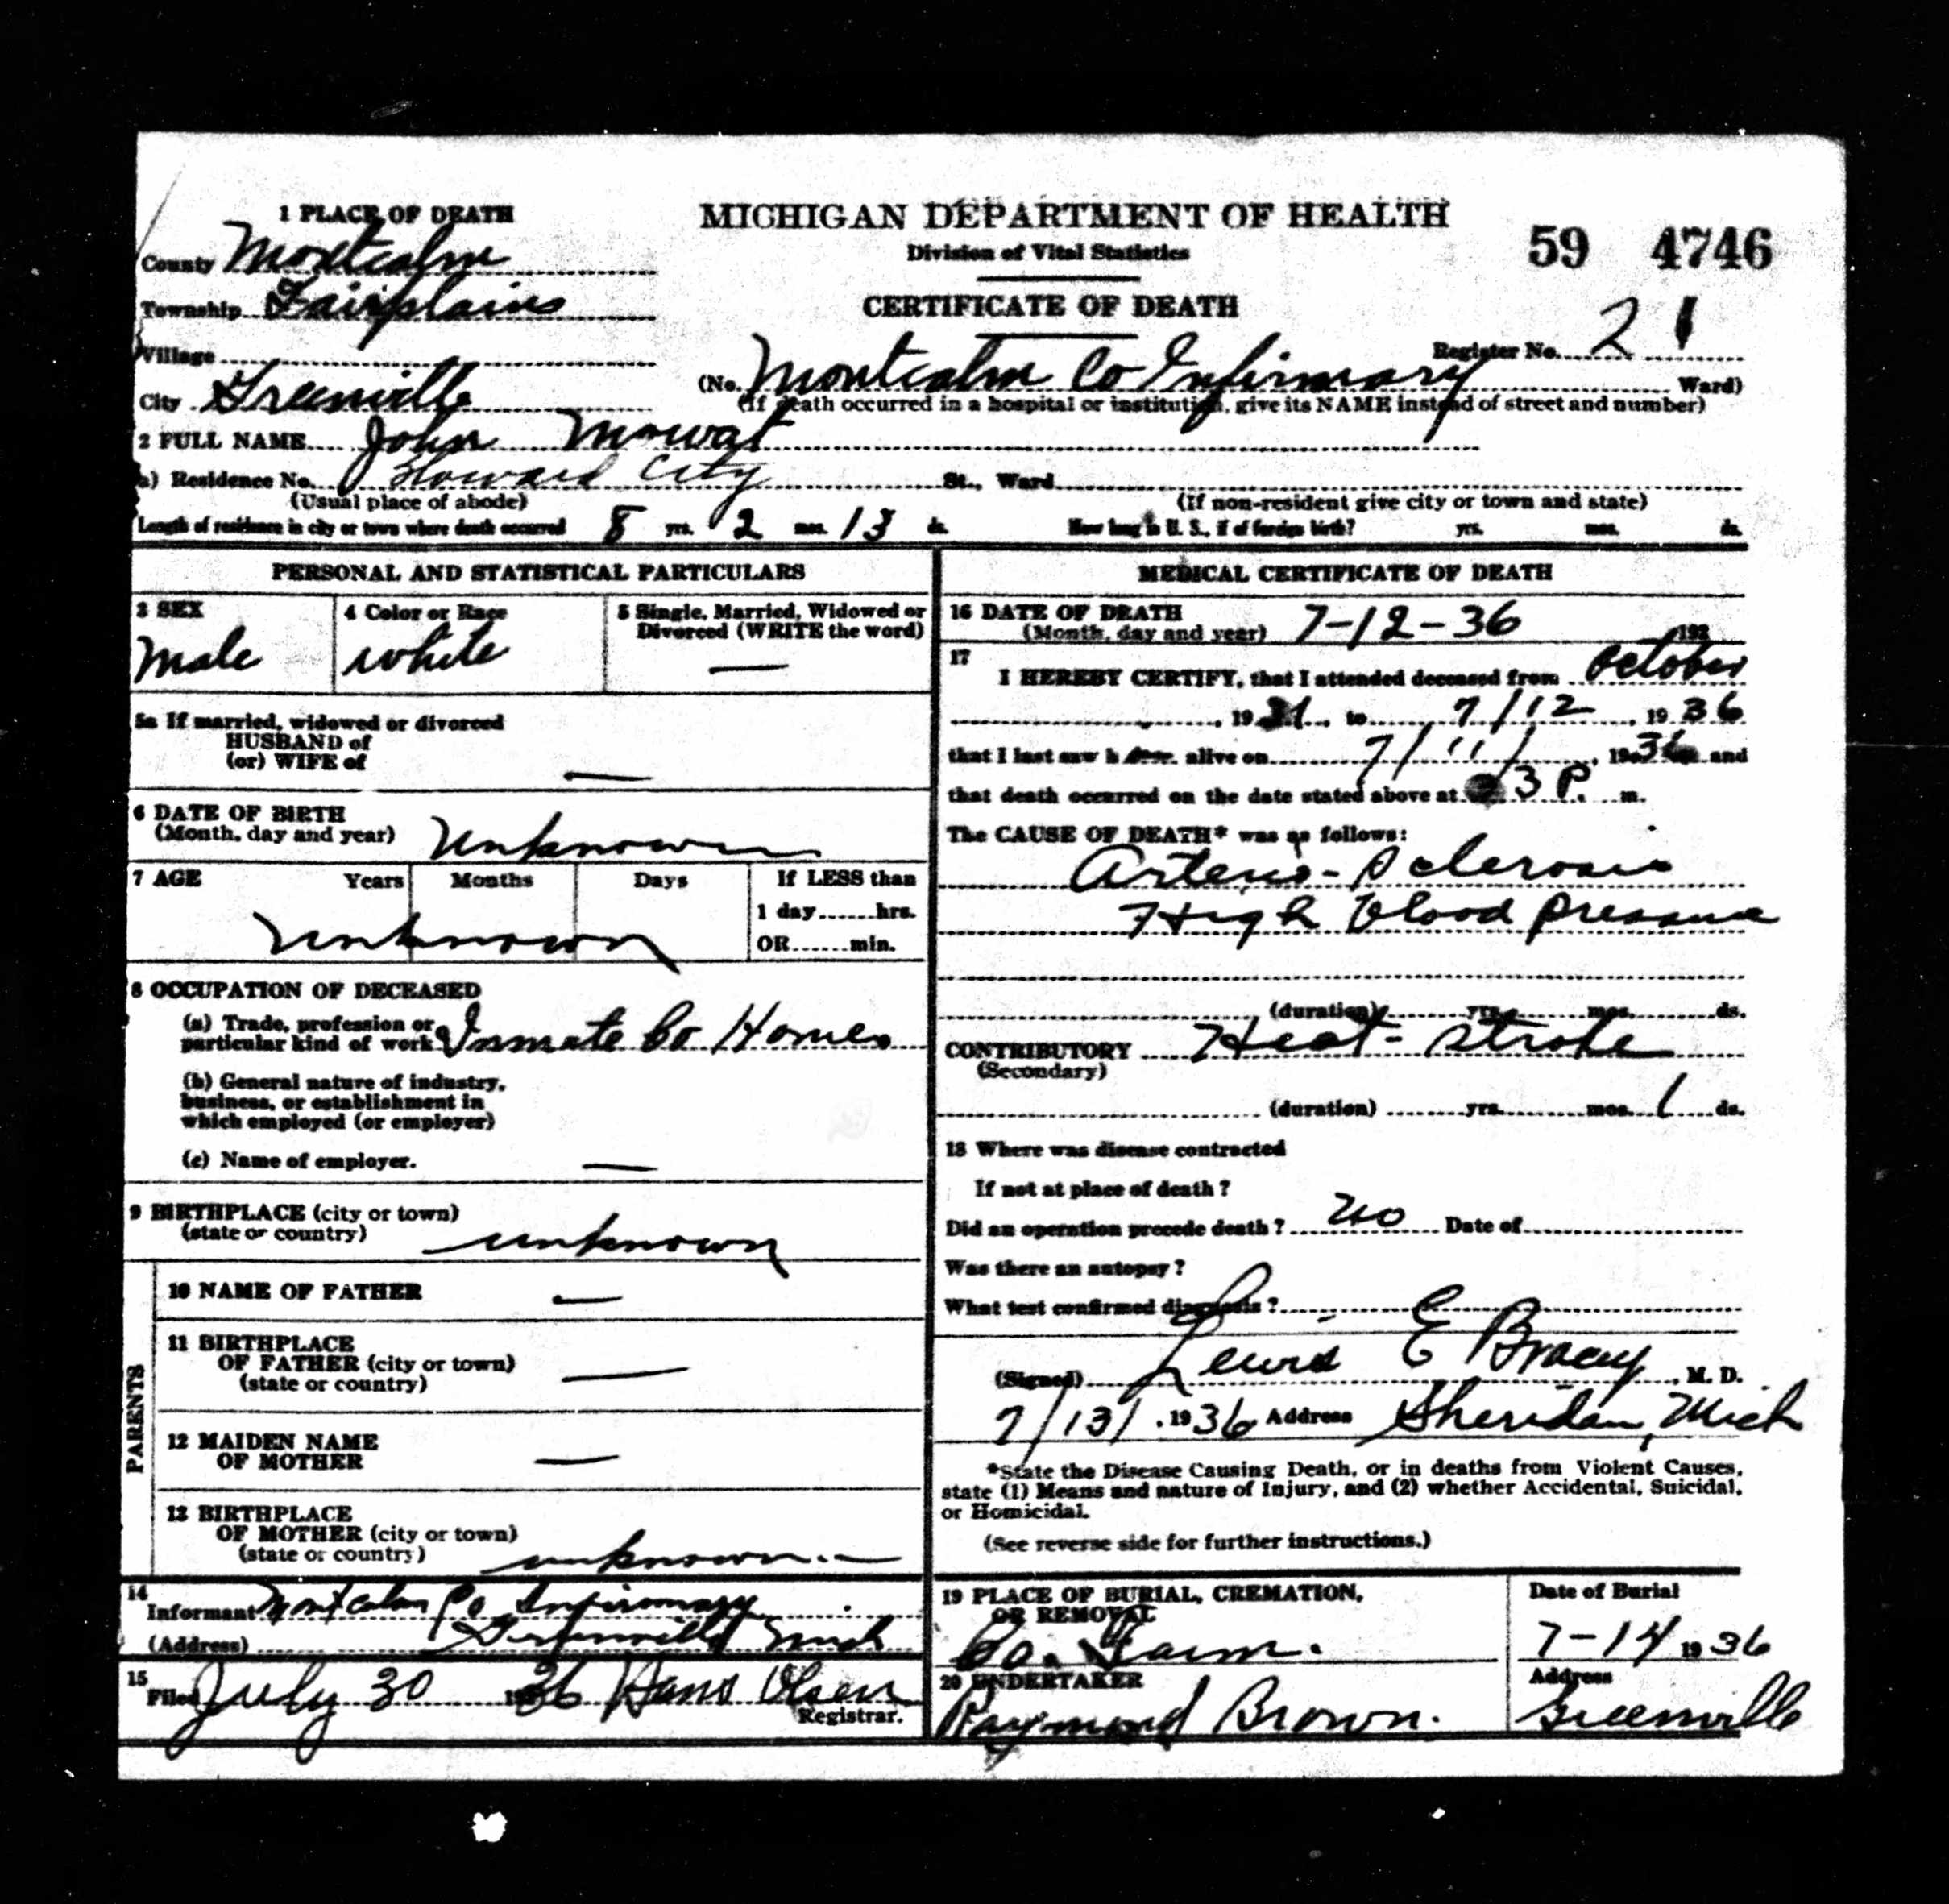 1 PLACE OF DEATH
County Montcalm
Township Fairplains
Village
City Greenville
MICHIGAN DEPARTMENT OF HEALTH
Division of Vital Statistics
CERTIFICATE OF DEATH
59 4746
Register No. 21
(No. Montcalm Co Infirmary Ward)
(If death occurred in a hospital or institution, give its NAME instead of street and number)
2 FULL NAME John Mowat
a) Residence No. Howard City St., Ward
(Usual place of abode) (If non-resident give city or town and state)
Length of residence in city or town where death occurred 8 yrs. 2 mos. 13 ds. How long in U. S., if of foreign birth? yrs. mos. ds.
PERSONAL AND STATISTICAL PARTICULARS
3 SEX
Male
4 Color or Race
white
5 Single, Married, Widowed or
Divorced (WRITE the word)
—
5a If married, widowed or divorced
HUSBAND of
(or) WIFE of —
6 DATE OF BIRTH
(Month, day and year) Unknown
7 AGE Years Months Days If LESS than
1 day......hrs.
OR......min.
unknown
8 OCCUPATION OF DECEASED
(a) Trade, profession or
particular kind of work Inmate Co Homes
(b) General nature of industry,
business, or establishment in
which employed (or employer)
(c) Name of employer. —
9 BIRTHPLACE (city or town)
(state or country) unknown
PARENTS
10 NAME OF FATHER —
11 BIRTHPLACE
OF FATHER (city or town)
(state or country) —
12 MAIDEN NAME
OF MOTHER —
13 BIRTHPLACE
OF MOTHER (city or town)
(state or country) unknown.
14
Informant Montcalm Co Infirmary
(Address) Greenville Mich
15
Filed July 30 1936 Hans Olsen
Registrar.
MEDICAL CERTIFICATE OF DEATH
16 DATE OF DEATH
(Month, day and year) 7-12-36 192
17
I HEREBY CERTIFY, that I attended deceased from October
, 1931, to 7/12, 1936
that I last saw h alive on 7/11/, 1936 and
that death occurred on the date stated above at 3 P. m.
The CAUSE OF DEATH* was as follows:
Arterio-Sclerosis
High blood pressure
(duration) yrs. mos. ds.
CONTRIBUTORY Heat-stroke
(Secondary)
(duration) yrs. mos. 1 ds.
18 Where was disease contracted
If not at place of death?
Did an operation precede death? no Date of
Was there an autopsy?
What test confirmed diagnosis?
(Signed) Lewis E Bracey, M. D.
7/13/, 1936 Address Sheridan, Mich
*State the Disease Causing Death, or in deaths from Violent Causes,
state (1) Means and nature of Injury, and (2) whether Accidental, Suicidal,
or Homicidal.
(See reverse side for further instructions.)
19 PLACE OF BURIAL, CREMATION,
OR REMOVAL
Co. Farm.
Date of Burial
7-14 1936
20 UNDERTAKER
Raymond Brown.
Address
Greenville